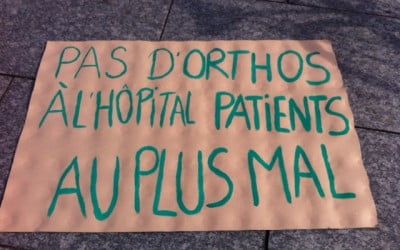 PAS D'ORTHOS
À L'HÔPITAL PATIENTS
AU PLUS MAL